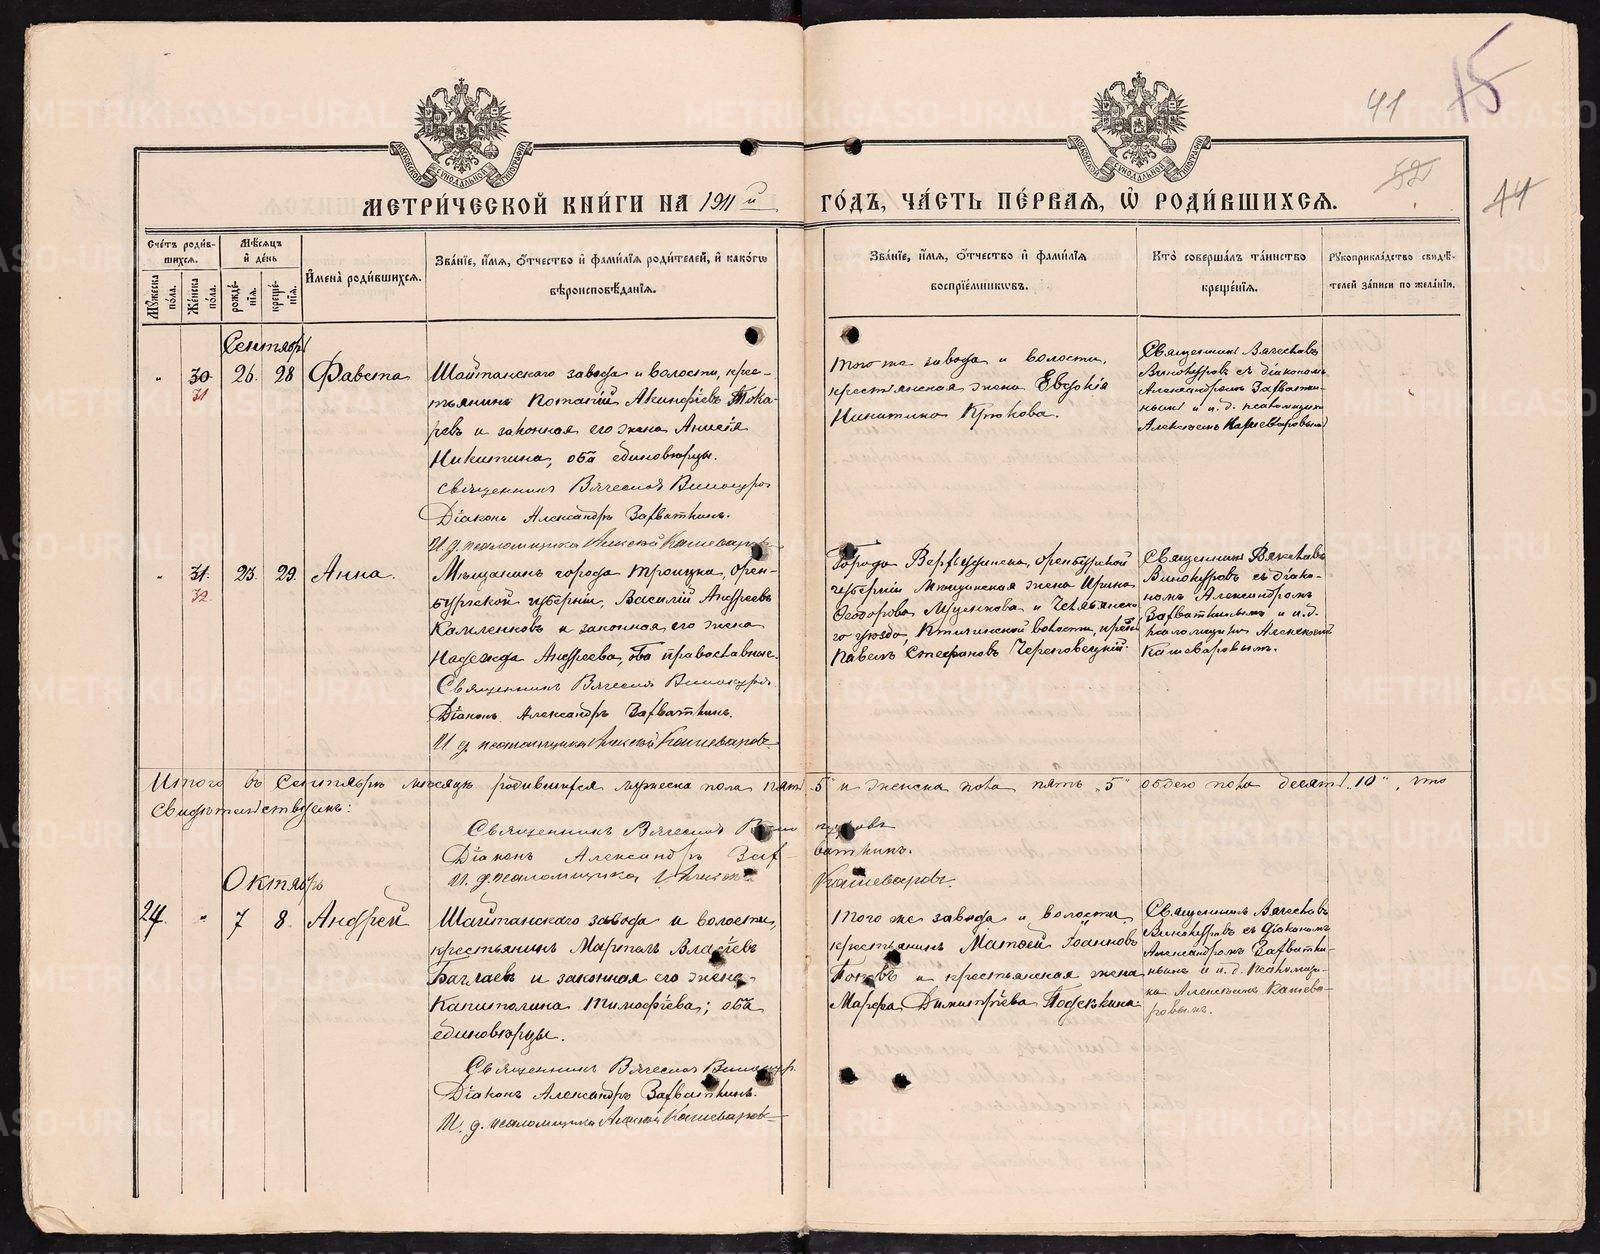 41
15
52
44
МЕТРИ́ЧЕСКОЙ КНИ́ГИ НА 1911й
ГО́ДЪ, ЧА́СТЬ ПЕ́РВАЯ, Ѡ҆ РОДИ́ВШИХСЯ.
Сче́тъ роди́в-
шихся.
Мꙋ́жеска по́ла.
Же́нска по́ла.
Мѣ́сяцъ и де́нь
рожде́-
нїя.
креще́-
нїя.
И҆мена̀ роди́вшихся.
Зва́нїе, и҆́мя, ѻ҆́тчество и҆ фами́лїя роди́телей, и҆ како́гѡ
вѣроисповѣ́данїя.
Зва́нїе, и҆́мя, ѻ҆́тчество и҆ фами́лїя
воспрїе́мникѡвъ.
Кто̀ соверша́лъ та́инство
креще́нїя.
Рꙋкоприкла́дство свидѣ́-
телей за́писи по жела́нїю.
Сентябрь
" 30 26. 28 Фавста
31
Шайтанскаго завода и волости, кре-
стьянинъ Потапій Акинфіевъ Тока-
ревъ и законная его жена Анисія
Никитина, оба единоверцы.
Священникъ Вячеслав Винокуров
Діаконъ Александръ Зафваткинъ.
И. д. псаломщика Алексей Кашеваров
того же завода и волости,
крестьянская жена Евдокія
Никитина Крюкова.
Священникъ Вячеславъ
Винокуровъ съ діакономъ
Александромъ Зафватки-
нымъ и и. д. псаломщика
Алексѣемъ Кашеваровымъ
" 31. 23. 29. Анна.
32
Мѣщанинъ города Троицка, Орен-
бургской губерніи, Василій Андреевъ
Камленковъ и законная его жена
Надежда Андреева, оба православные.
Священникъ Вячеслав Винокуров.
Діаконъ Александръ Зафваткинъ.
И. д. псаломщика Алексей Кашеваровъ
Города Верхнеуральска, Оренбургской
губерніи мѣщанская жена Ирина
Ѳеодорова и Челябинска-
го уѣзда, волости, крест.
Павелъ Стефановъ Череповецкій.
Священникъ Вячеславъ
Винокуровъ съ діако-
номъ Александромъ
Зафваткинымъ и и. д.
псаломщика Алексѣемъ
Кашеваровымъ.
Итого въ Сентябрѣ мѣсяцѣ родившихся мужеска пола пять „5" и женска пола пять „5" обоего пола десять „10", что
свидѣтельствуемъ:
Священникъ Вячеслав Винокуровъ
Діаконъ Александръ Зафваткинъ.
И. д. псаломщика Алексей Кашеваровъ.
Октябрь
24. " 7 8. Андрей
Шайтанскаго завода и волости,
крестьянинъ Мартинъ Власіевъ
Баглаевъ и законная его жена
Капитолина Тимофіева; оба
единоверцы.
Священникъ Вячеслав Винокуров.
Діаконъ Александръ Зафваткинъ.
И. д. псаломщика Алексей Кашеваровъ
того же завода и волости
крестьянинъ Матѳей Іоанновъ
и крестьянская жена
Марфа Димитріева
Священникъ Вячеславъ
Винокуровъ съ діакономъ
Александромъ Зафватки-
нымъ и и. д. псаломщи-
ка Алексѣемъ Кашева-
ровымъ.
METRIKI.GASO-URAL.RU